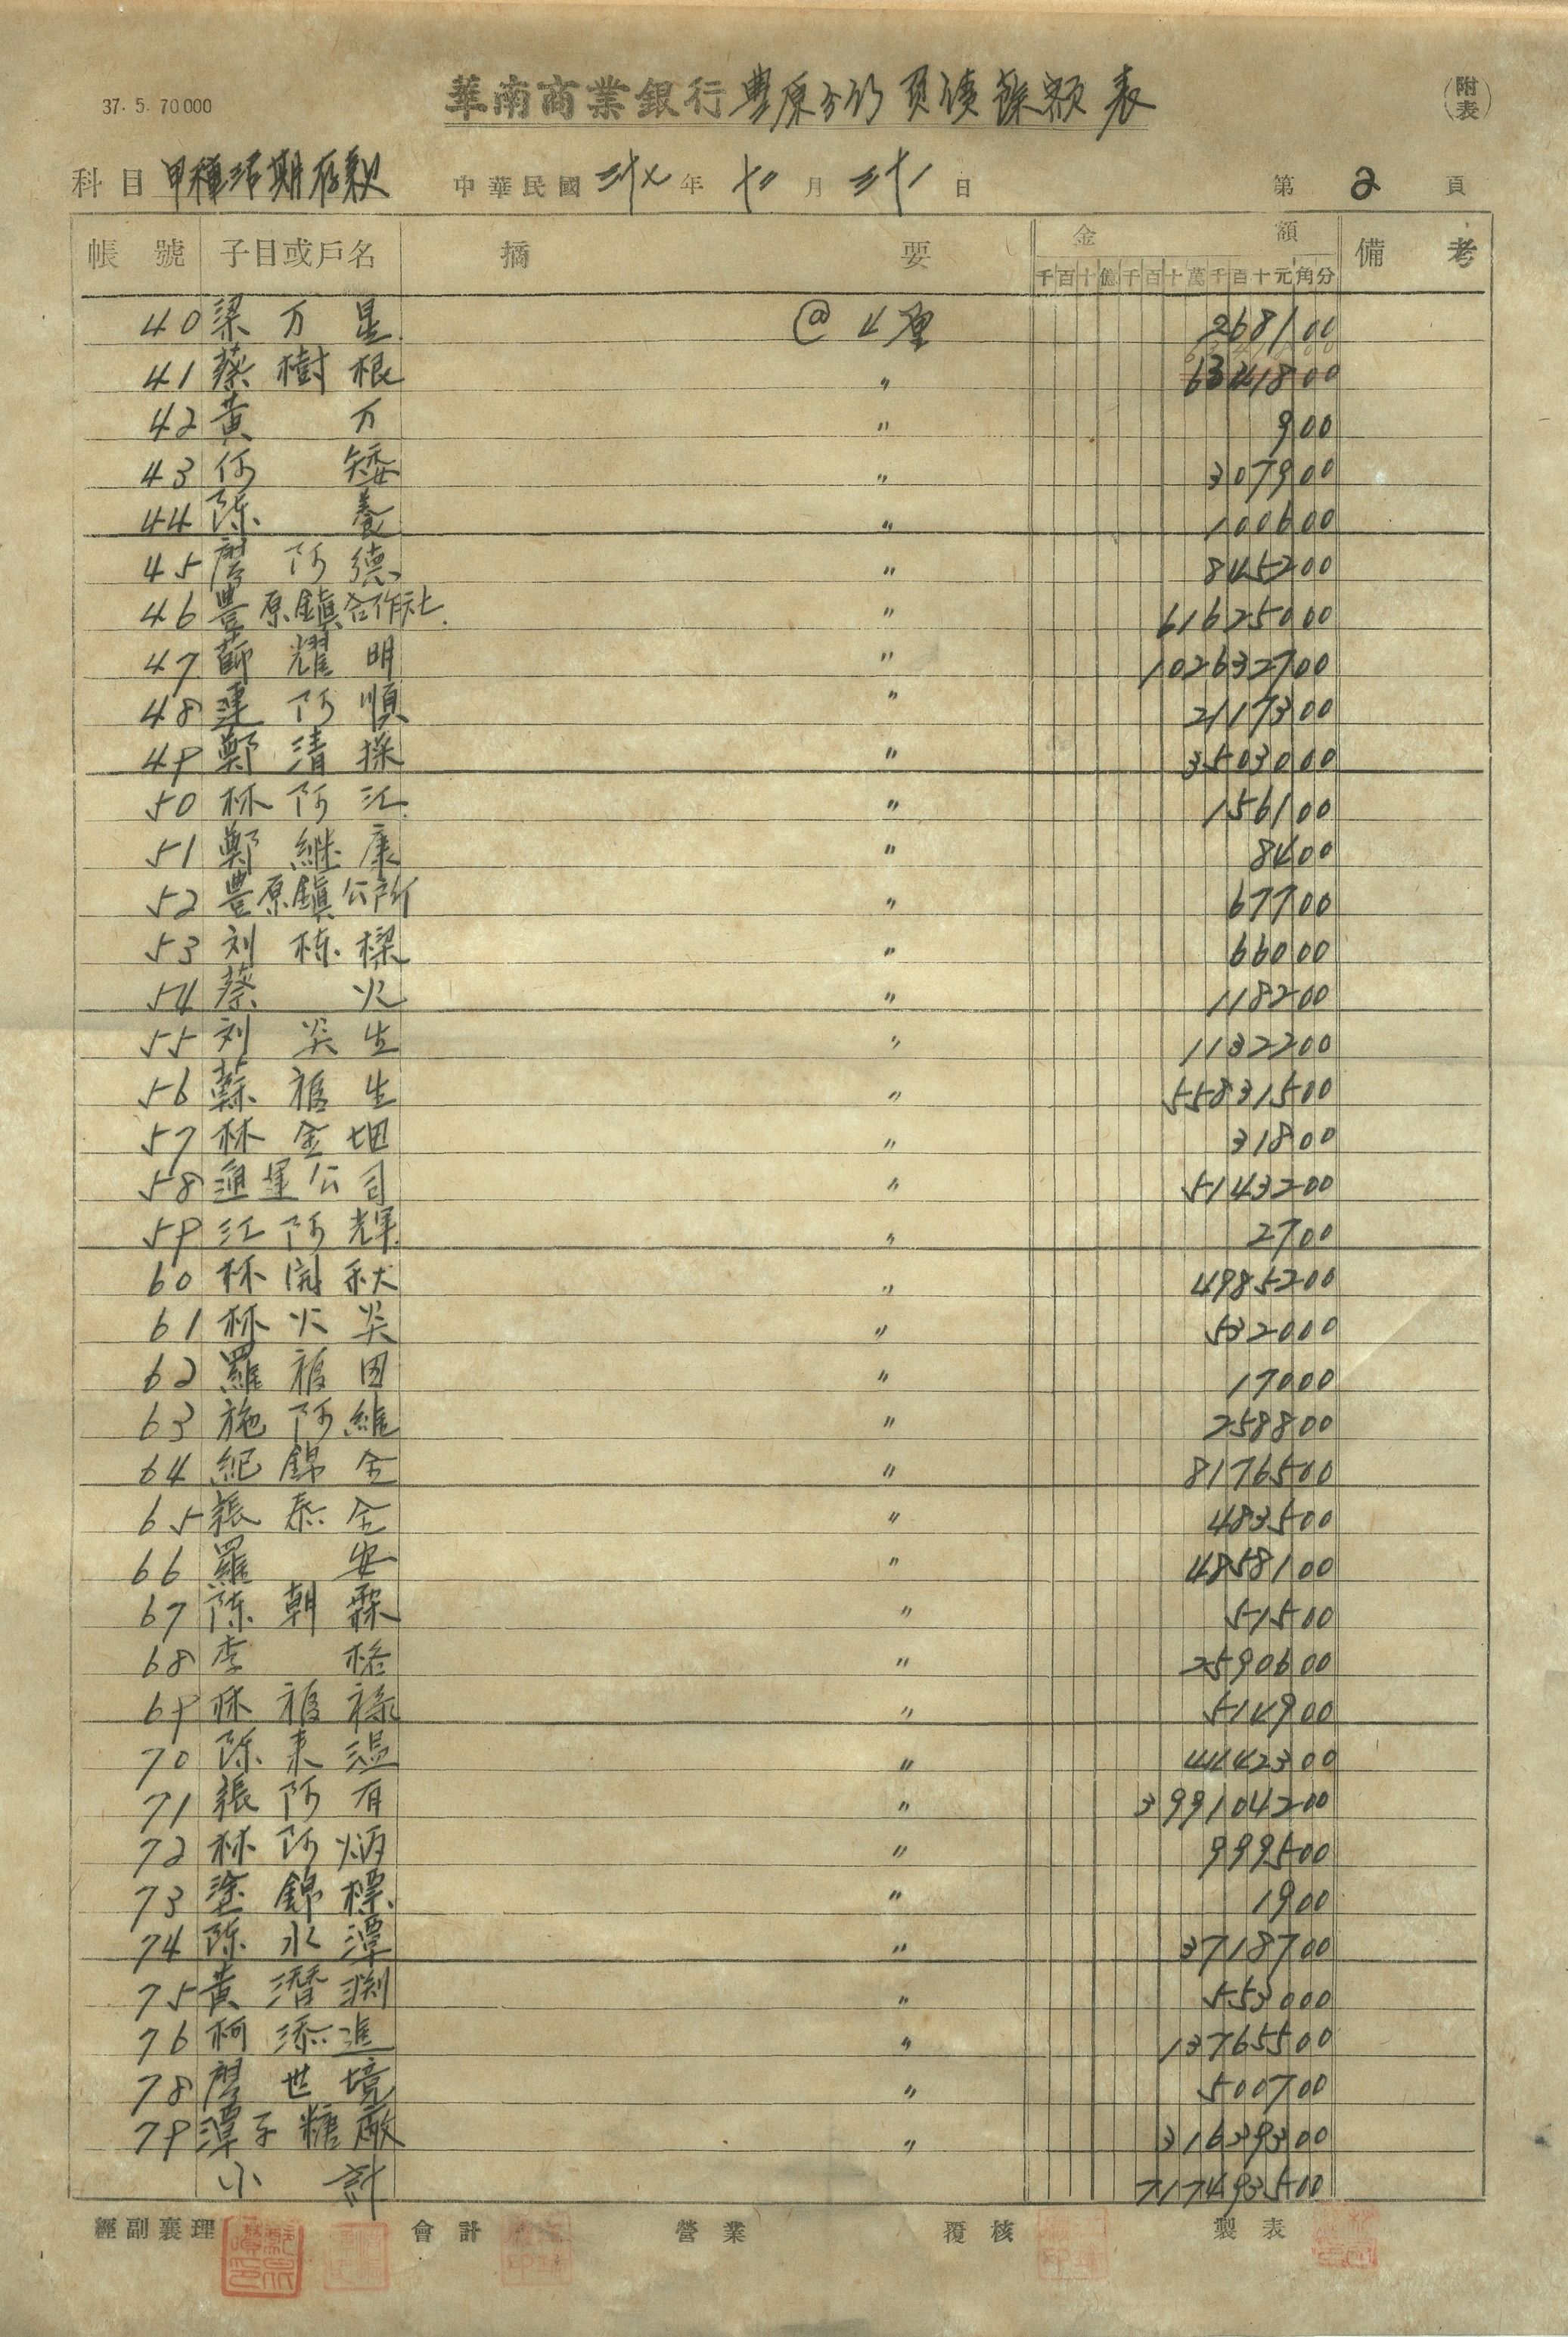 37. 5. 70000
華南商業銀行豊原分行負債餘額表
(附表)
科目 甲種活期存款 中華民國 三十七 年 十二 月 三十一 日 第 2 頁
帳號 子目或戶名 摘要 金額 備考
千百十億千百十萬千百十元角分
40 梁万星 @4厘 268100
41 蔡樹根 〃 6341800
42 黃万 〃 900
43 何矮 〃 307900
44 陈養 〃 100600
45 廖阿德 〃 845200
46 豊原鎮合作社 〃 61625000
47 薛耀明 〃 102632700
48 連阿順 〃 2117300
49 鄭清操 〃 3503000
50 林阿江 〃 156100
51 鄭継康 〃 8400
52 豊原鎮公所 〃 67700
53 刘栋樑 〃 66000
54 蔡火 〃 118200
55 刘炎生 〃 1132200
56 蘇福生 〃 55831500
57 林金 〃 31800
58 通運公司 〃 5143200
59 江阿輝 〃 2700
60 林開秋 〃 4985200
61 林火炎 〃 532000
62 羅福田 〃 17000
63 施阿維 〃 258800
64 紀錦全 〃 8176500
65 張泰全 〃 483500
66 羅安 〃 4858100
67 陈朝霖 〃 51500
68 李格 〃 2590600
69 林福祿 〃 514900
70 陈来温 〃 4442300
71 張阿有 〃 399104200
72 林阿炳 〃 999500
73 塗錦標 〃 1900
74 陈水潭 〃 3718700
75 黃潛渕 〃 553000
76 柯添進 〃 13765500
78 廖世境 〃 500700
79 潭子糖廠 〃 31639300
小計 717493500
經副襄理 會計 營業 覆核 製表